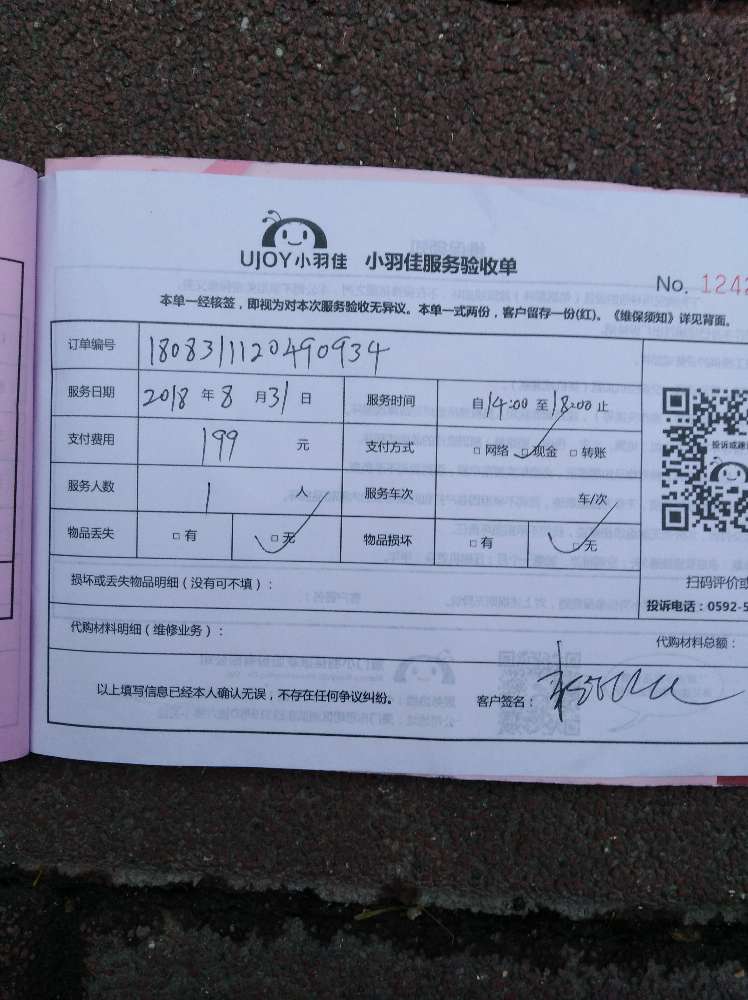 UJOY小羽佳 小羽佳服务验收单
No. 1242
本单一经核签，即视为对本次服务验收无异议。本单一式两份，客户留存一份(红)。《维保须知》详见背面。
订单编号 180831120490934
服务日期 2018 年 8 月 31 日 服务时间 自 14:00 至 18:00 止
支付费用 199 元 支付方式 □ 网络 □ 现金 □ 转账
投诉或建
服务人数 1 人 服务车次 车/次
物品丢失 □ 有 □ 无 物品损坏 □ 有 □ 无
损坏或丢失物品明细（没有可不填）：
扫码评价或
投诉电话：0592-5
代购材料明细（维修业务）：
代购材料总额：
以上填写信息已经本人确认无误，不存在任何争议纠纷。 客户签名：